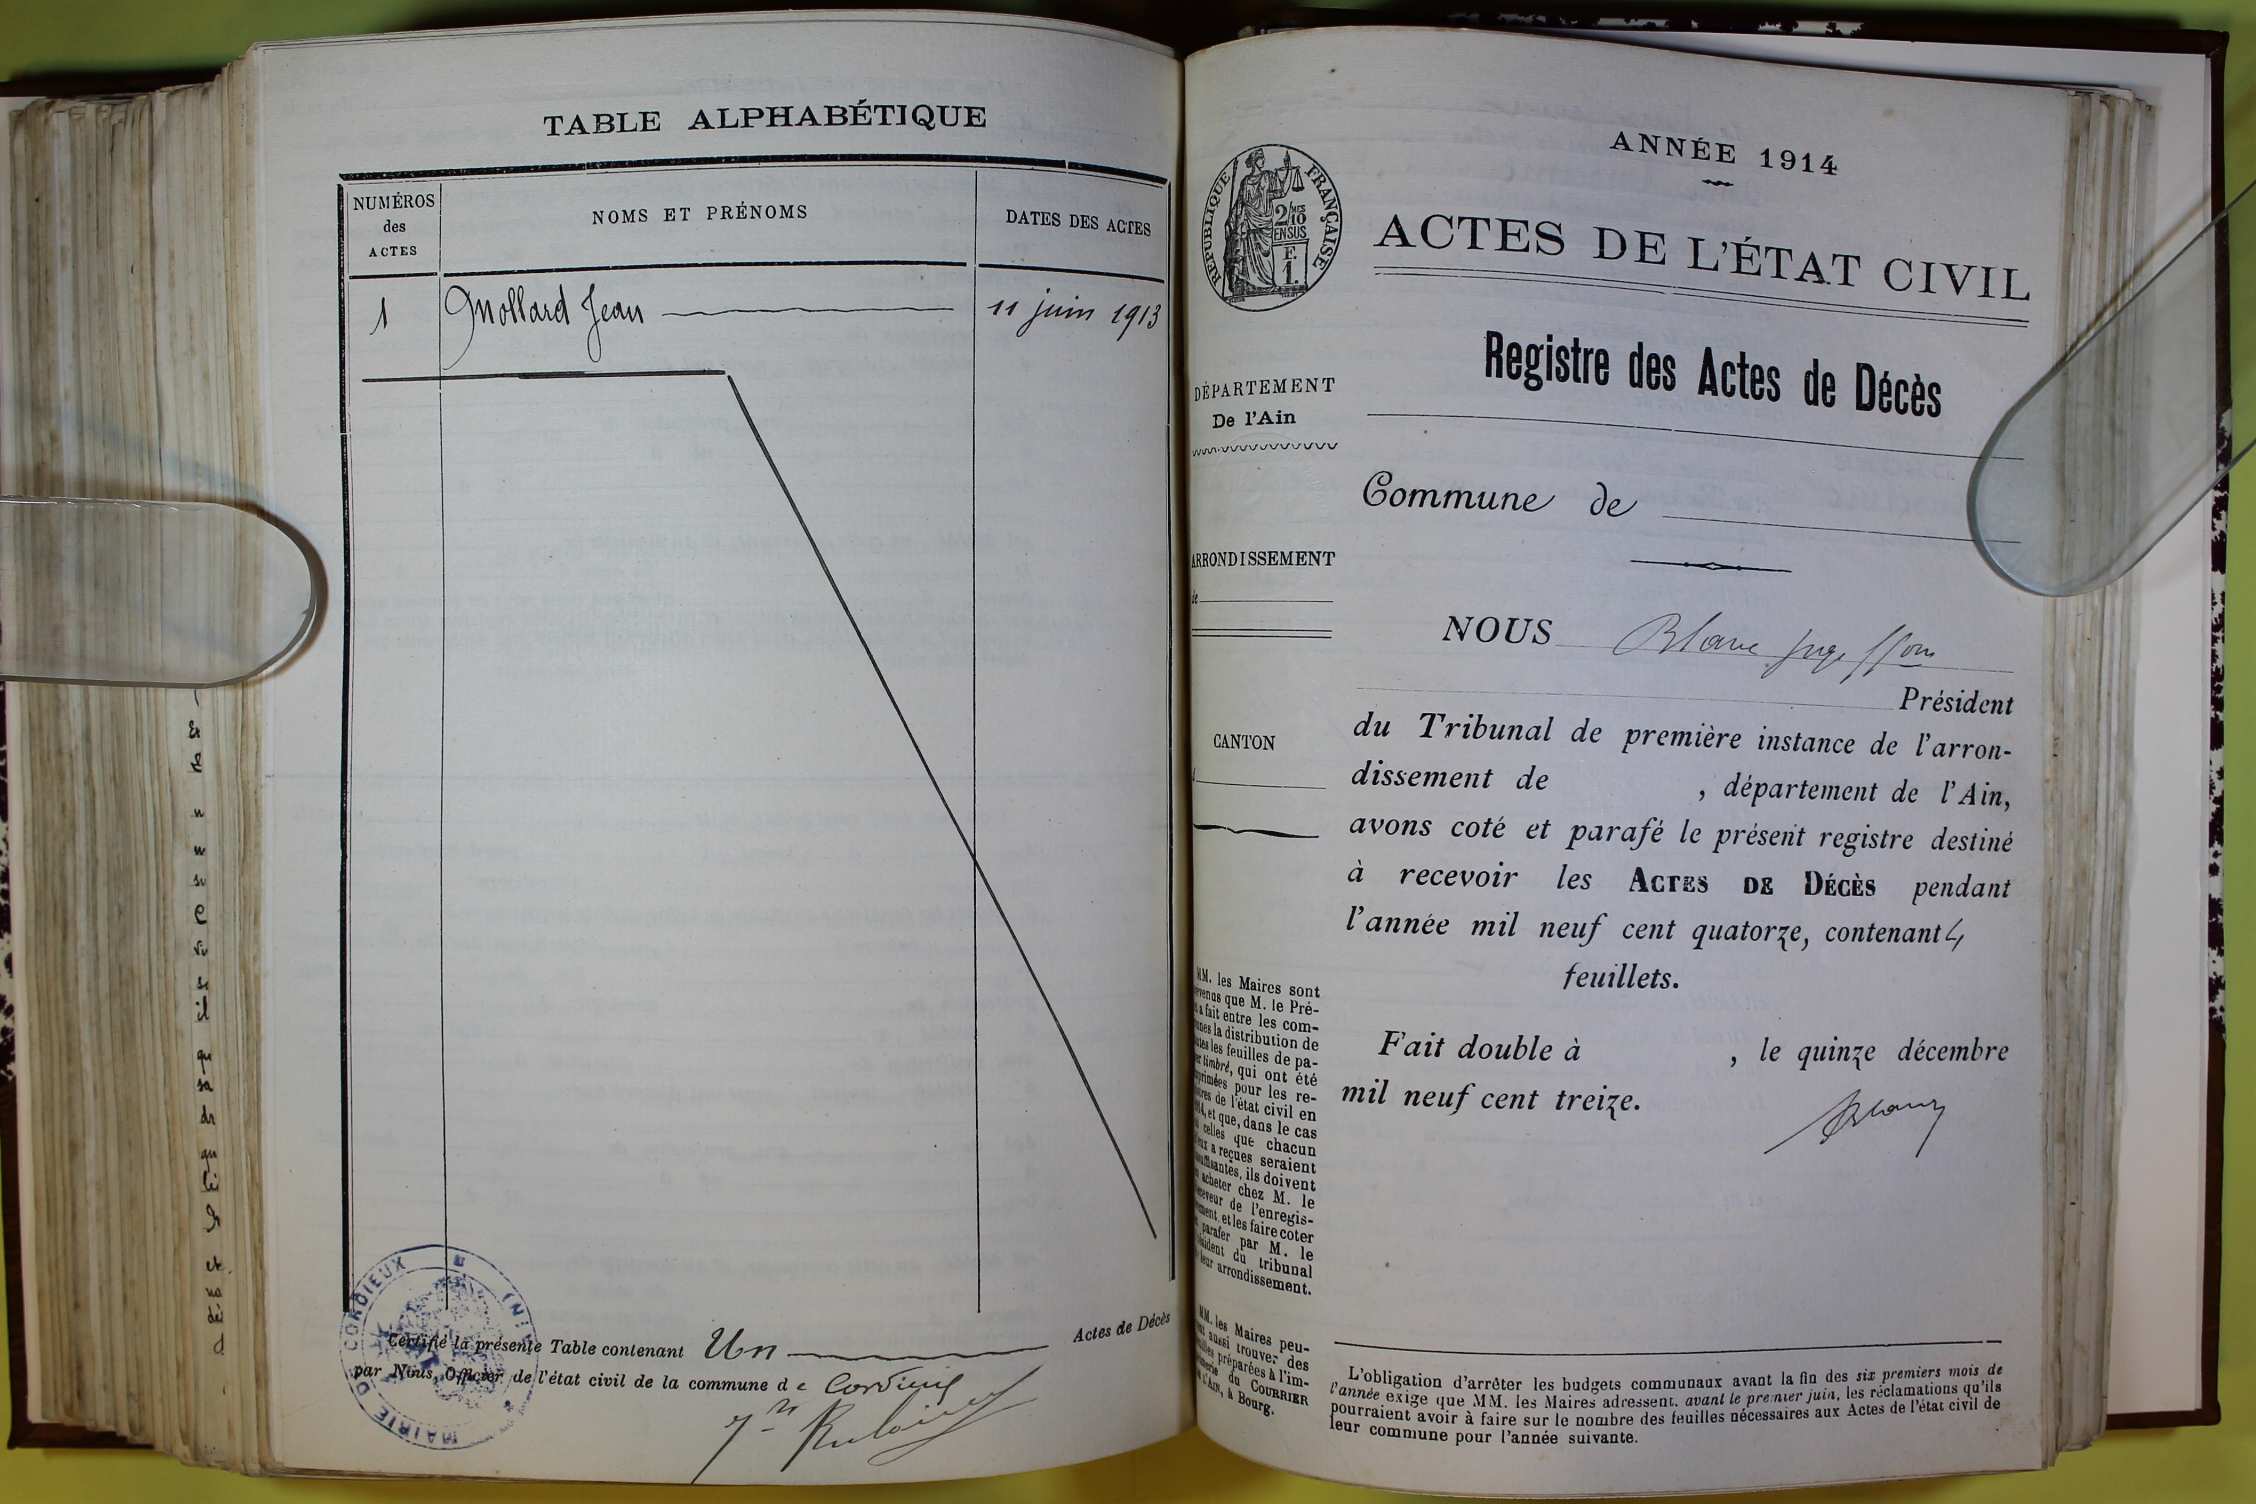 TABLE ALPHABÉTIQUE
NUMÉROS
des
ACTES
NOMS ET PRÉNOMS
DATES DES ACTES
1
Mollard Jean
11 juin 1913
Certifié la présente Table contenant Un
Actes de Décès
par Nous, Officier de l'état civil de la commune de Cordieux
MAIRIE DE CORDIEUX
ANNÉE 1914
RÉPUBLIQUE FRANÇAISE
2/10 MES
EN SUS
F.
1.
ACTES DE L'ÉTAT CIVIL
Registre des Actes de Décès
DÉPARTEMENT
De l'Ain
Commune de
ARRONDISSEMENT
de
CANTON
NOUS Blanc juge
Président
du Tribunal de première instance de l'arron-
dissement de , département de l'Ain,
avons coté et parafé le présent registre destiné
à recevoir les ACTES DE DÉCÈS pendant
l'année mil neuf cent quatorze, contenant 4
feuillets.
Fait double à , le quinze décembre
mil neuf cent treize.
Blanc
MM. les Maires sont
que M. le Pré-
a fait entre les com-
la distribution de
les feuilles de pa-
timbré, qui ont été
pour les re-
de l'état civil en
et que, dans le cas
celles que chacun
a reçues seraient
ils doivent
acheter chez M. le
de l'enregis-
et les faire coter
parafer par M. le
du tribunal
leur arrondissement.
MM. les Maires peu-
aussi trouver des
préparées à l'im-
du COURRIER
à Bourg.
L'obligation d'arrêter les budgets communaux avant la fin des six premiers mois de
l'année exige que MM. les Maires adressent, avant le premier juin, les réclamations qu'ils
pourraient avoir à faire sur le nombre des feuilles nécessaires aux Actes de l'état civil de
leur commune pour l'année suivante.